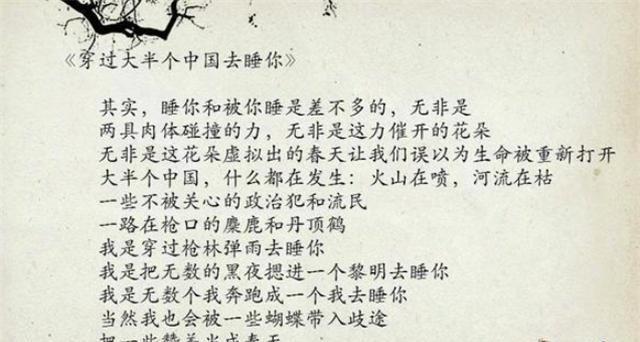 《穿过大半个中国去睡你》
其实，睡你和被你睡是差不多的，无非是
两具肉体碰撞的力，无非是这力催开的花朵
无非是这花朵虚拟出的春天让我们误以为生命被重新打开
大半个中国，什么都在发生：火山在喷，河流在枯
一些不被关心的政治犯和流民
一路在枪口的麋鹿和丹顶鹤
我是穿过枪林弹雨去睡你
我是把无数的黑夜摁进一个黎明去睡你
我是无数个我奔跑成一个我去睡你
当然我也会被一些蝴蝶带入歧途
把一些赞美当成春天